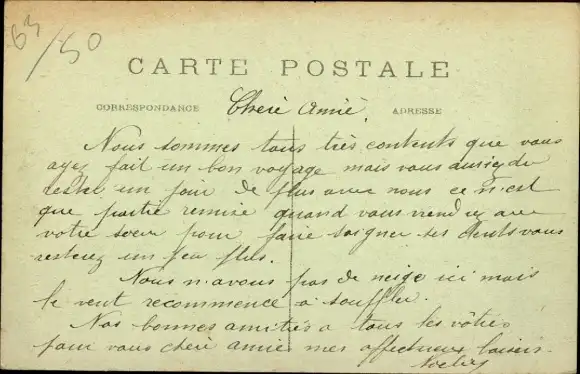 63/50
CARTE POSTALE
CORRESPONDANCE Cherè Amiè. ADRESSE
Nous sommes tous très contents que vous
ayez fait un bon voyage mais vous auriez du
rester un jour de plus avec nous ce n'est
que partie remise quand vous viendrez avec
votre soeur pour faire soigner ses dents vous
resterez un peu plus.
Nous n'avons pas de neige ici mais
le vent recommence à souffler.
Nos bonnes amitiés a tous les vôtres
pour vous cherè amie mes affectueux baisers.